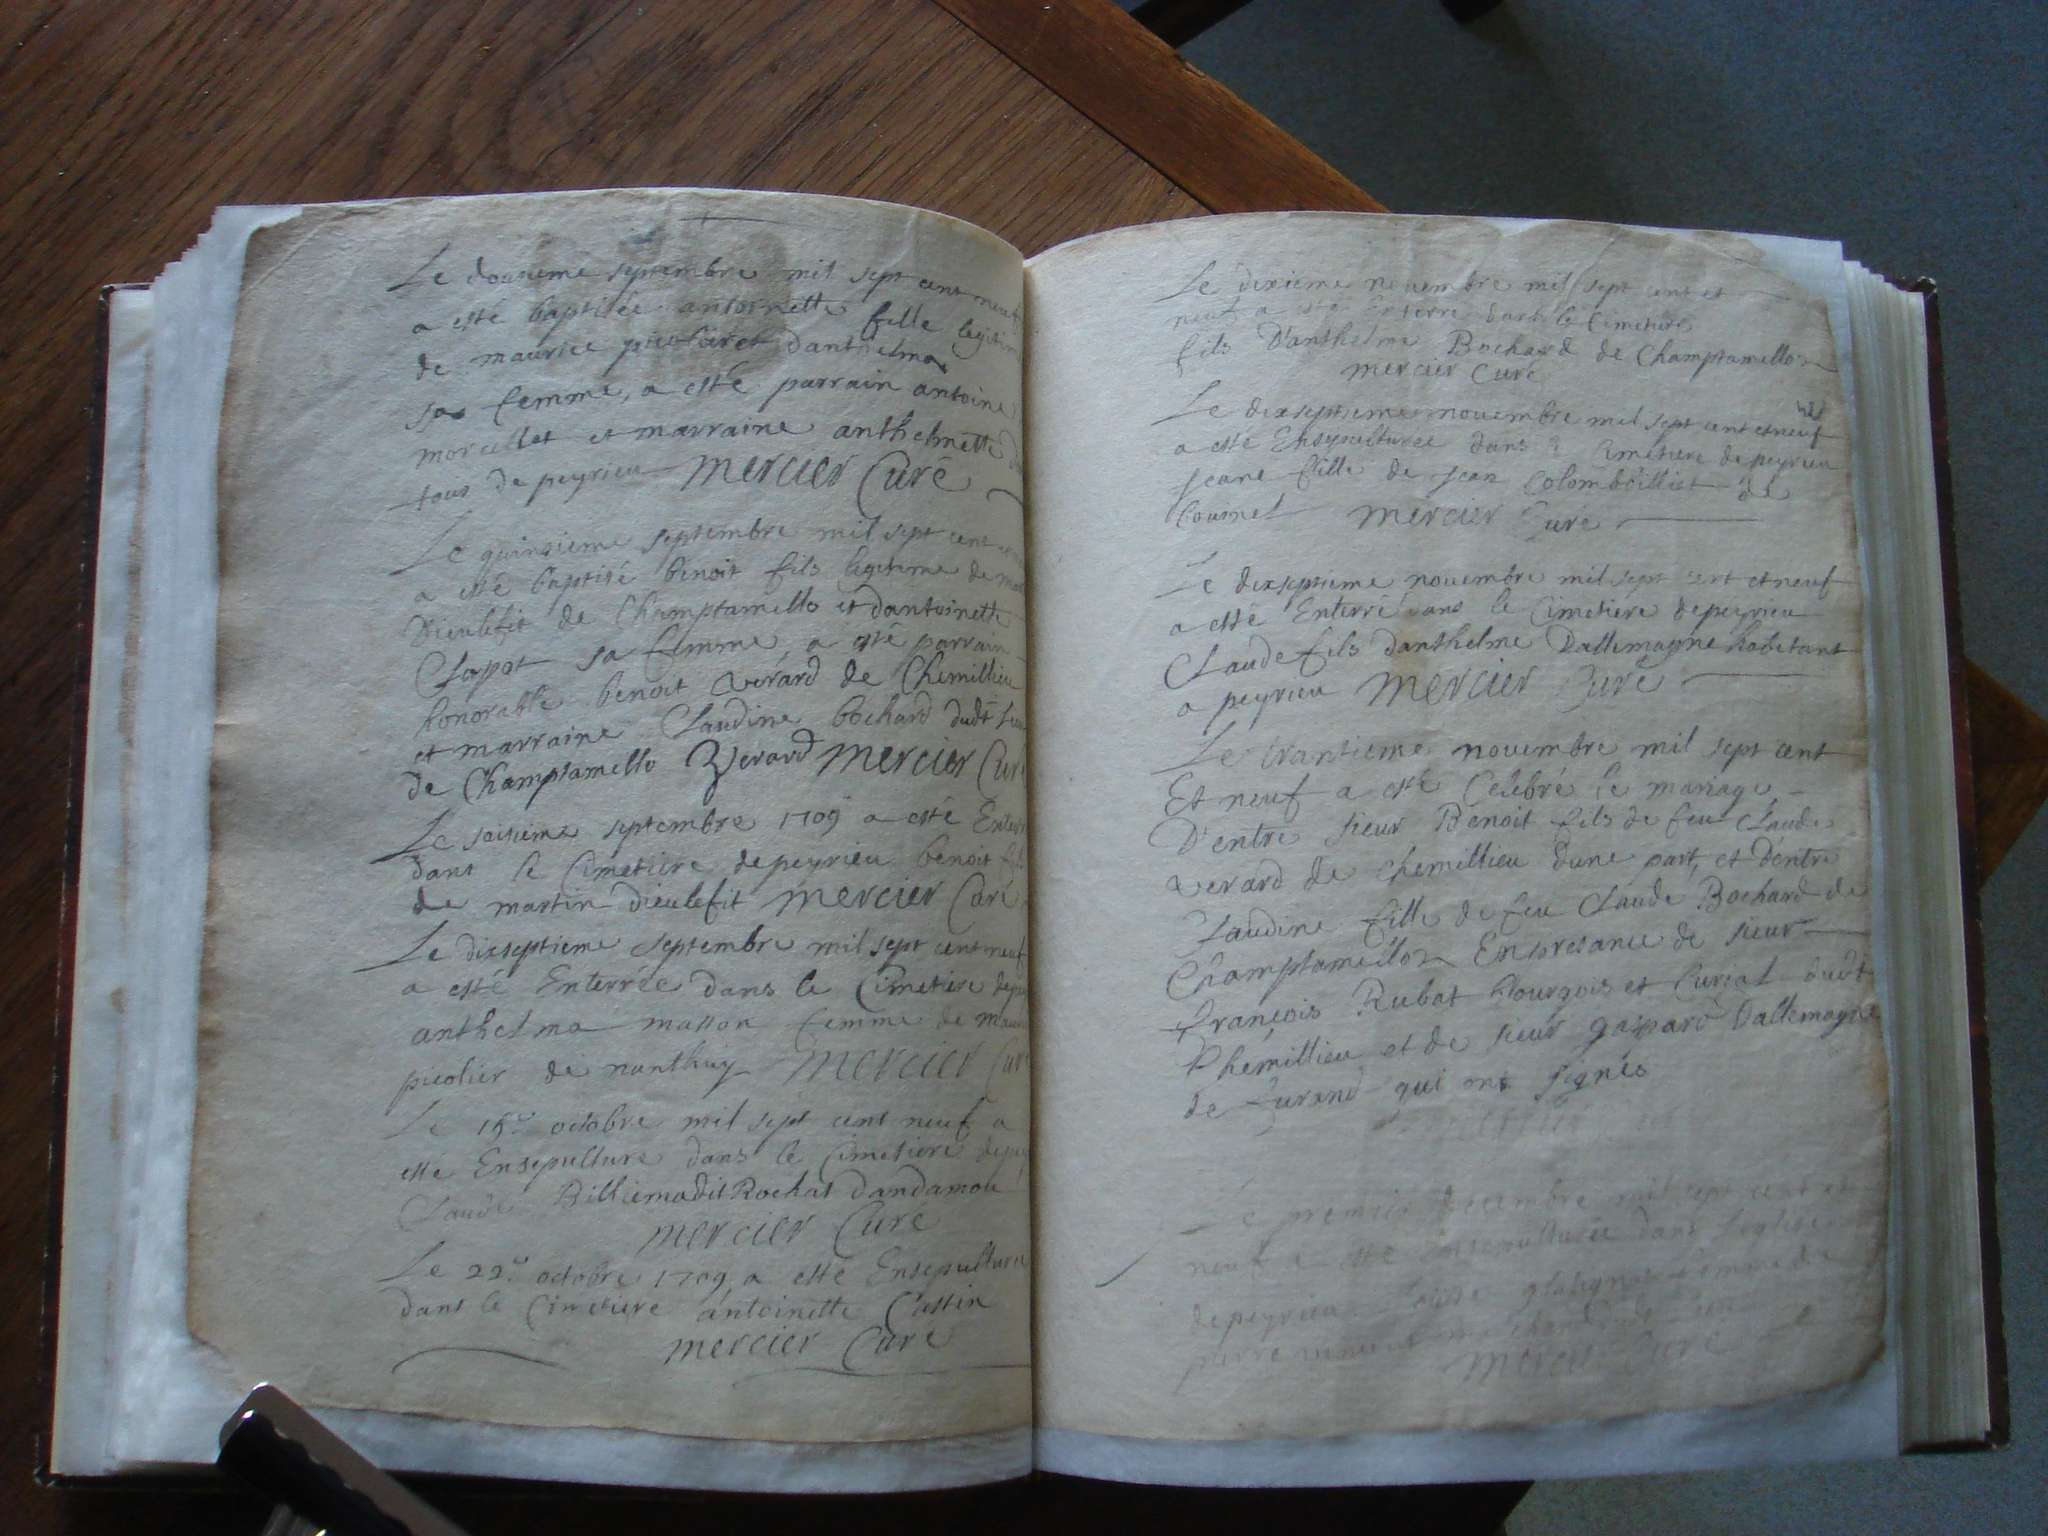 Le dousieme septembre mil sept cent neuf
a esté baptisée antoinette fille legitime
de maurice picolier et danthelma
sa femme, a esté parrain antoine
morcellet et marraine anthelmette
tous de peyrieu mercier Curé
Le quinsieme septembre mil sept cent
a esté baptisé benoit fils legitime de
Dieulefit de Champtamello et dantoinette
Clapot sa femme, a esté parrain
honorable benoit averard de Chemillieu
et marraine Claudine bochard dudt
de Champtamello Averard mercier Curé
Le seisieme septembre 1709 a esté Enterré
dans le Cimetiere depeyrieu benoit fils
de martin Dieulefit mercier Curé
Le dixseptieme septembre mil sept cent neuf
a esté Enterrée dans le Cimetiere
anthelma masson femme de
picolier de nanthuy mercier Curé
Le 15e octobre mil sept cent neuf a
esté Ensepulture dans le Cimetiere
Claude Billiemadit Rochat Dandamou
mercier Curé
Le 22e octobre 1709 a esté Ensepulture
dans le Cimetiere antoinette Castin
mercier Curé
Le dixieme novembre mil sept cent et
neuf a esté Enterré dans le Cimetiere
fils D'anthelme Bochard de Champtamellon
mercier Curé
Le dixseptieme novembre mil sept cent et neuf
a esté Ensepulturee dans le Cimetiere de peyrieu
Jeane fille de Jean Colombillist de
Cournet mercier Curé
Le dixseptieme novembre mil sept cent et neuf
a esté Enterré dans le Cimetiere depeyrieu
Claude fils danthelme Dallemagne habitant
a peyrieu mercier Curé
Le trantieme novembre mil sept cent
Et neuf a esté Celebré le mariage
D'entre sieur Benoit fils de feu Claude
averard de Chemillieu dune part, et D'entre
Claudine fille de feu Claude Bochard de
Champtamellon En presance de sieur
françois Rubat bourgois et Curial dudt
Chemillieu et de sieur gaspard Dallemagne
de qui ont signés
Le premier decembre mil sept cent et
neuf a esté ensepulturée dans l'eglise
depeyrieu femme de
mercier Curé